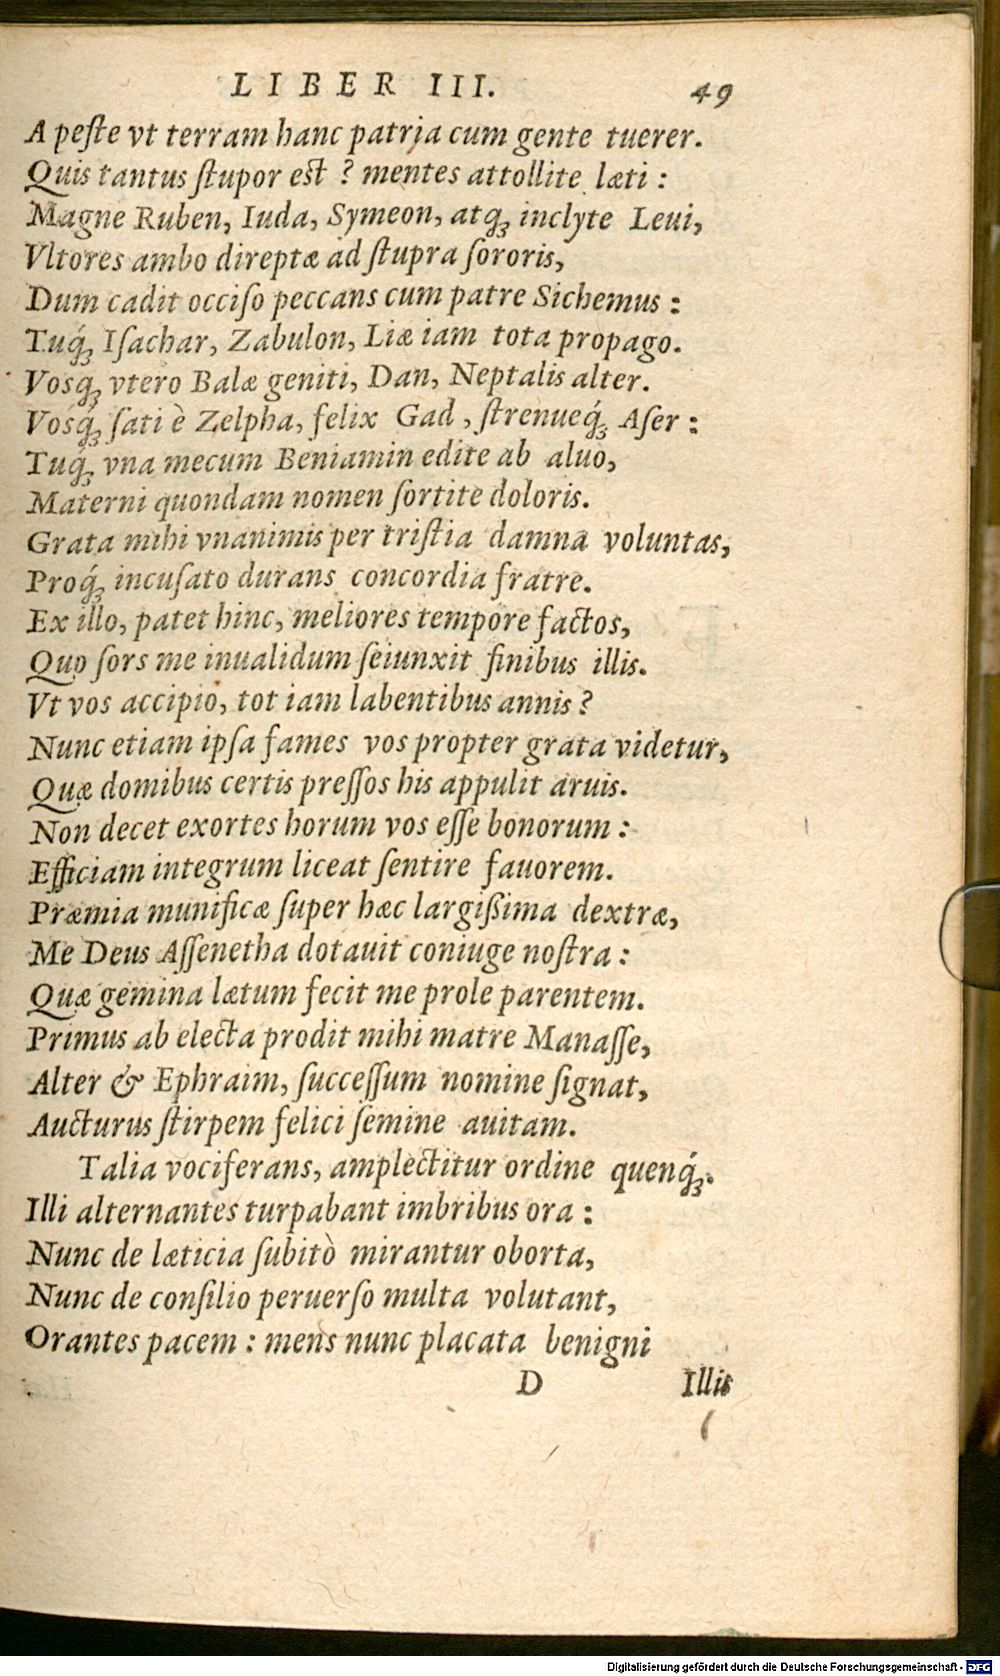 LIBER III. 49
A peſte vt terram hanc patria cum gente tuerer.
Quis tantus ſtupor eſt ? mentes attollite læti :
Magne Ruben, Iuda, Symeon, atqꝫ inclyte Leui,
Vltores ambo direptæ ad ſtupra ſororis,
Dum cadit occiſo peccans cum patre Sichemus :
Tuq́ꝫ Iſachar, Zabulon, Liæ iam tota propago.
Vosqꝫ vtero Balæ geniti, Dan, Neptalis alter.
Vosq́ꝫ ſati è Zelpha, felix Gad , ſtrenueq́ꝫ Aſer :
Tuq́ꝫ vna mecum Beniamin edite ab aluo,
Materni quondam nomen ſortite doloris.
Grata mihi vnanimis per triſtia damna voluntas,
Proq́ꝫ incuſato durans concordia fratre.
Ex illo, patet hinc, meliores tempore factos,
Quo ſors me inualidum ſeiunxit finibus illis.
Vt vos accipio, tot iam labentibus annis ?
Nunc etiam ipſa fames vos propter grata videtur,
Quæ domibus certis preſſos his appulit aruis.
Non decet exortes horum vos eſſe bonorum :
Efficiam integrum liceat ſentire fauorem.
Præmia munificæ ſuper hæc largißima dextræ,
Me Deus Aſſenetha dotauit coniuge noſtra :
Quæ gemina lætum fecit me prole parentem.
Primus ab electa prodit mihi matre Manaſſe,
Alter & Ephraim, ſucceſſum nomine ſignat,
Aucturus ſtirpem felici ſemine auitam.
Talia vociferans, amplectitur ordine quenq́ꝫ.
Illi alternantes turpabant imbribus ora :
Nunc de læticia ſubitò mirantur oborta,
Nunc de conſilio peruerſo multa volutant,
Orantes pacem : mens nunc placata benigni
D Illis
Digitalisierung gefördert durch die Deutsche Forschungsgemeinschaft - DFG